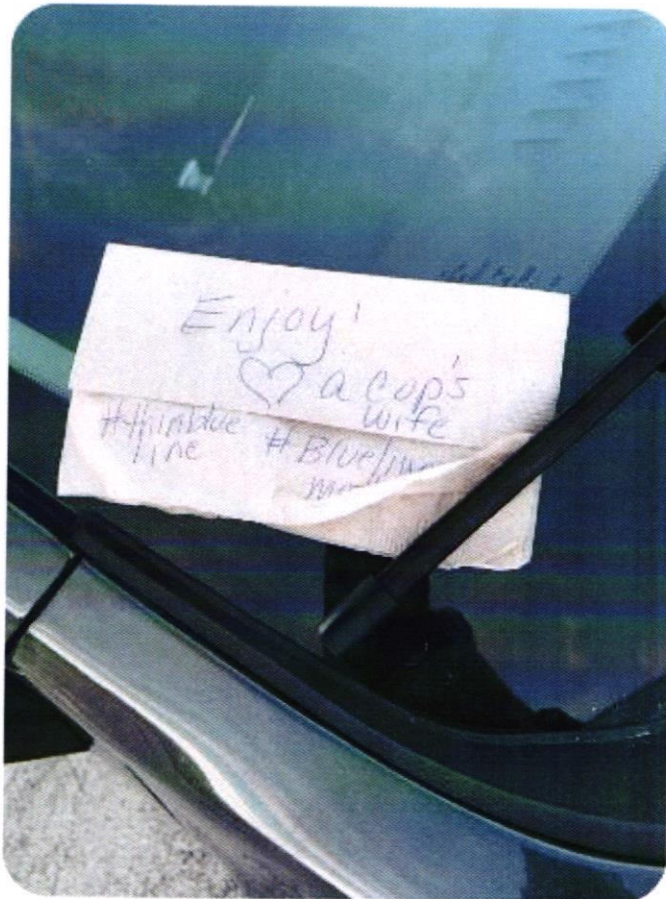 Enjoy!
♡ a cop's
wife
#thinblue
line